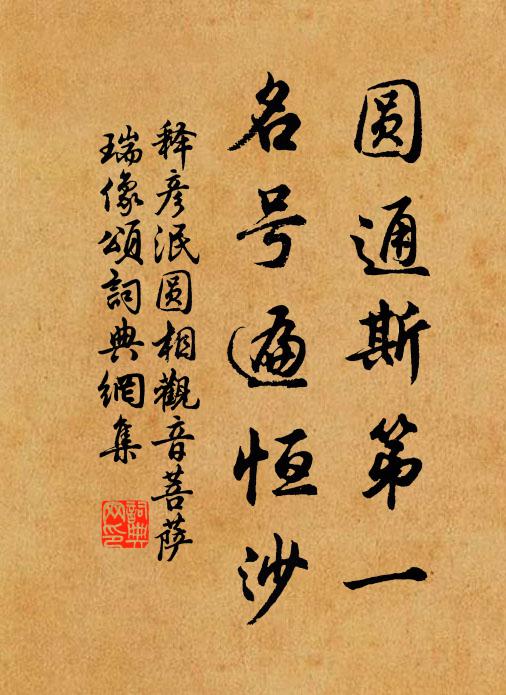 圆通斯第一
名号遍恒沙
释彦泯圆相觀音菩萨
瑞像頌詞典網集
詞典
网印